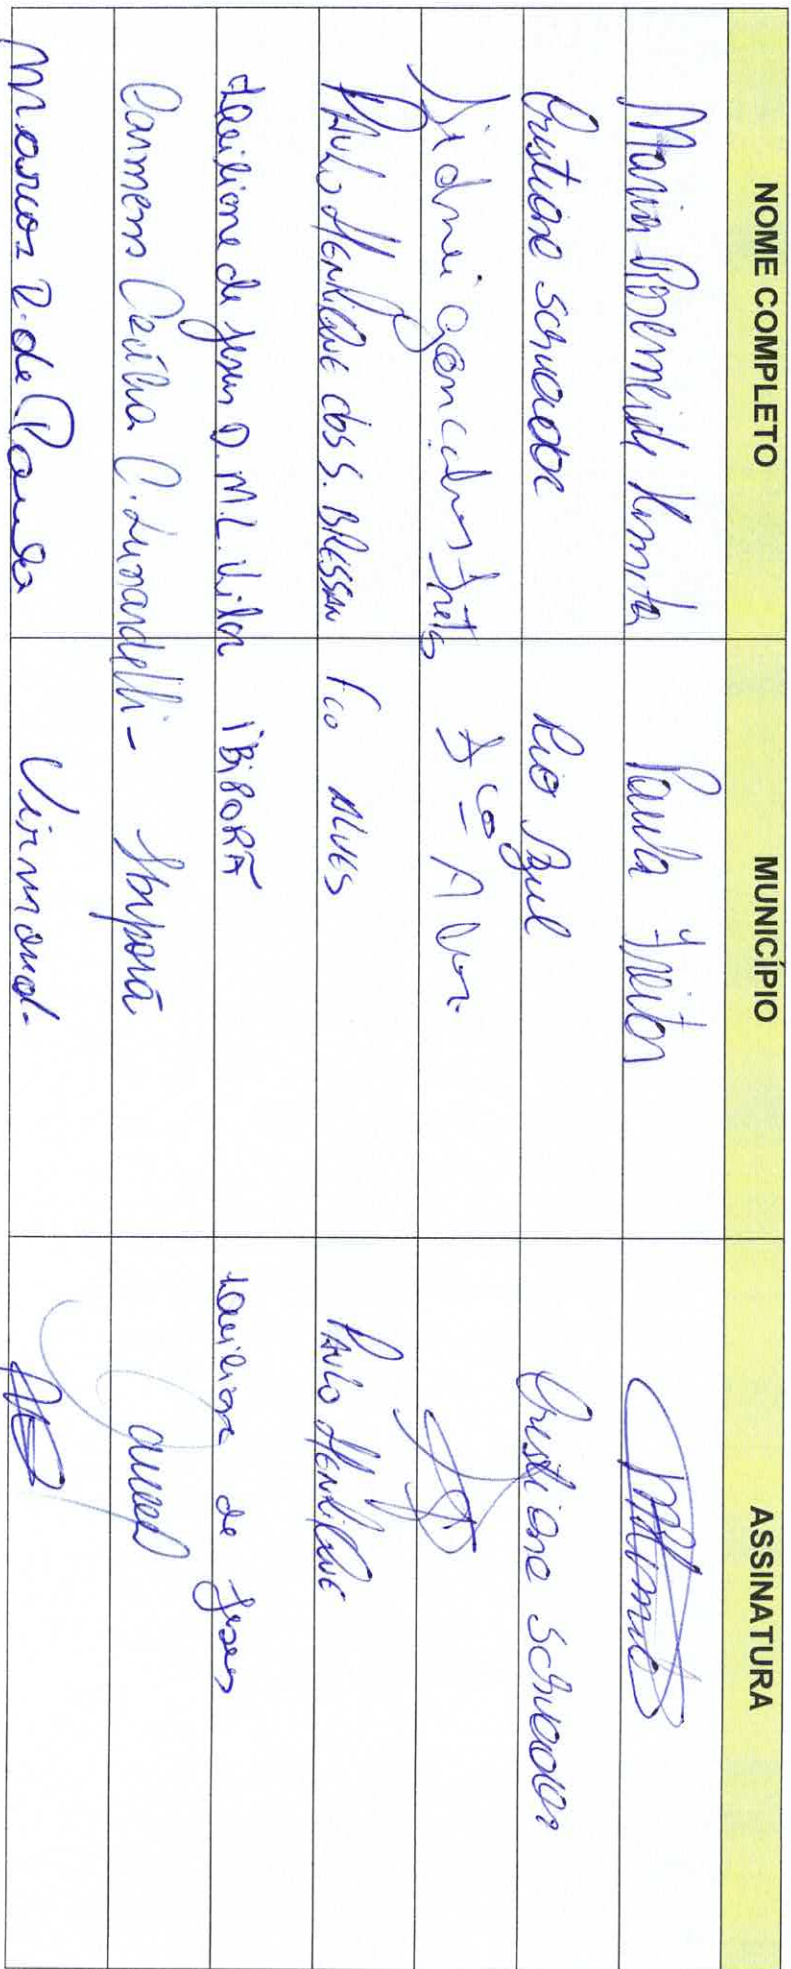 NOME COMPLETO MUNICÍPIO ASSINATURA
Maria Rosemeide Paula Freitas
Cristiane Salvador Rio Azul Cristiane Salvador
Sidnei Goncalves Freitas Fco Alves
Paulo Henrique dos S. BRESSAN Fco ALVES Paulo Henrique
de Jesus D. M.L. Vilar IBIPORÃ de Jesus
Carmem Cecília C. Lunardelli - Ibiporã
Marcos V. de Paula Virmond.